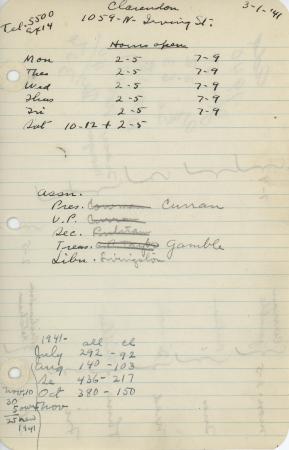 Clarendon 3-1-'41
Tel. 5500
1059-N-Irving St.
Hours open
Mon 2-5 7-9
Thes 2-5 7-9
Wed 2-5 7-9
Thus 2-5 7-9
Fri 2-5 7-9
Sat 10-12 + 2-5
Assn.
Pres. Curran
V.P. Curran
Sec.
Treas. Gamble
Libn. Livingston
1941- all - ch
July 292 - 92
Aug 140 - 103
Se 436 - 217
Oct 380 - 150
Nov
1941